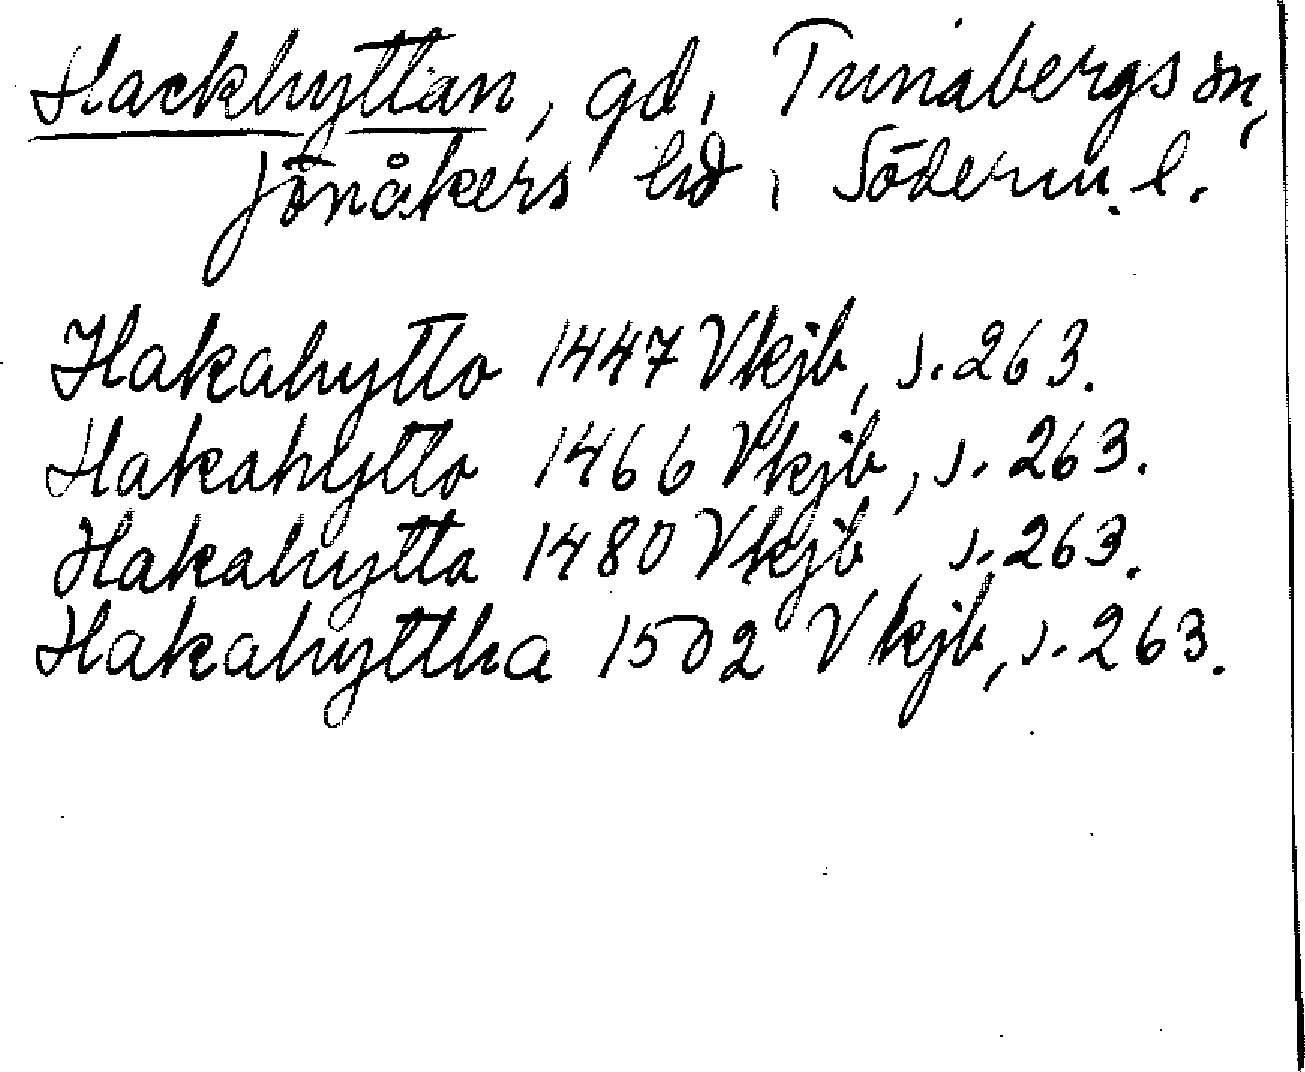 Hackhyttan, gd, Tunabergs sn,
Jönåkers hd, Söderm. l.
Hakahytto 1447 Vkjb, s. 263.
Hakahytto 1466 Vkjb, s. 263.
Hakahytta 1480 Vkjb, s. 263.
Hakahyttha 1502 Vkjb, s. 263.